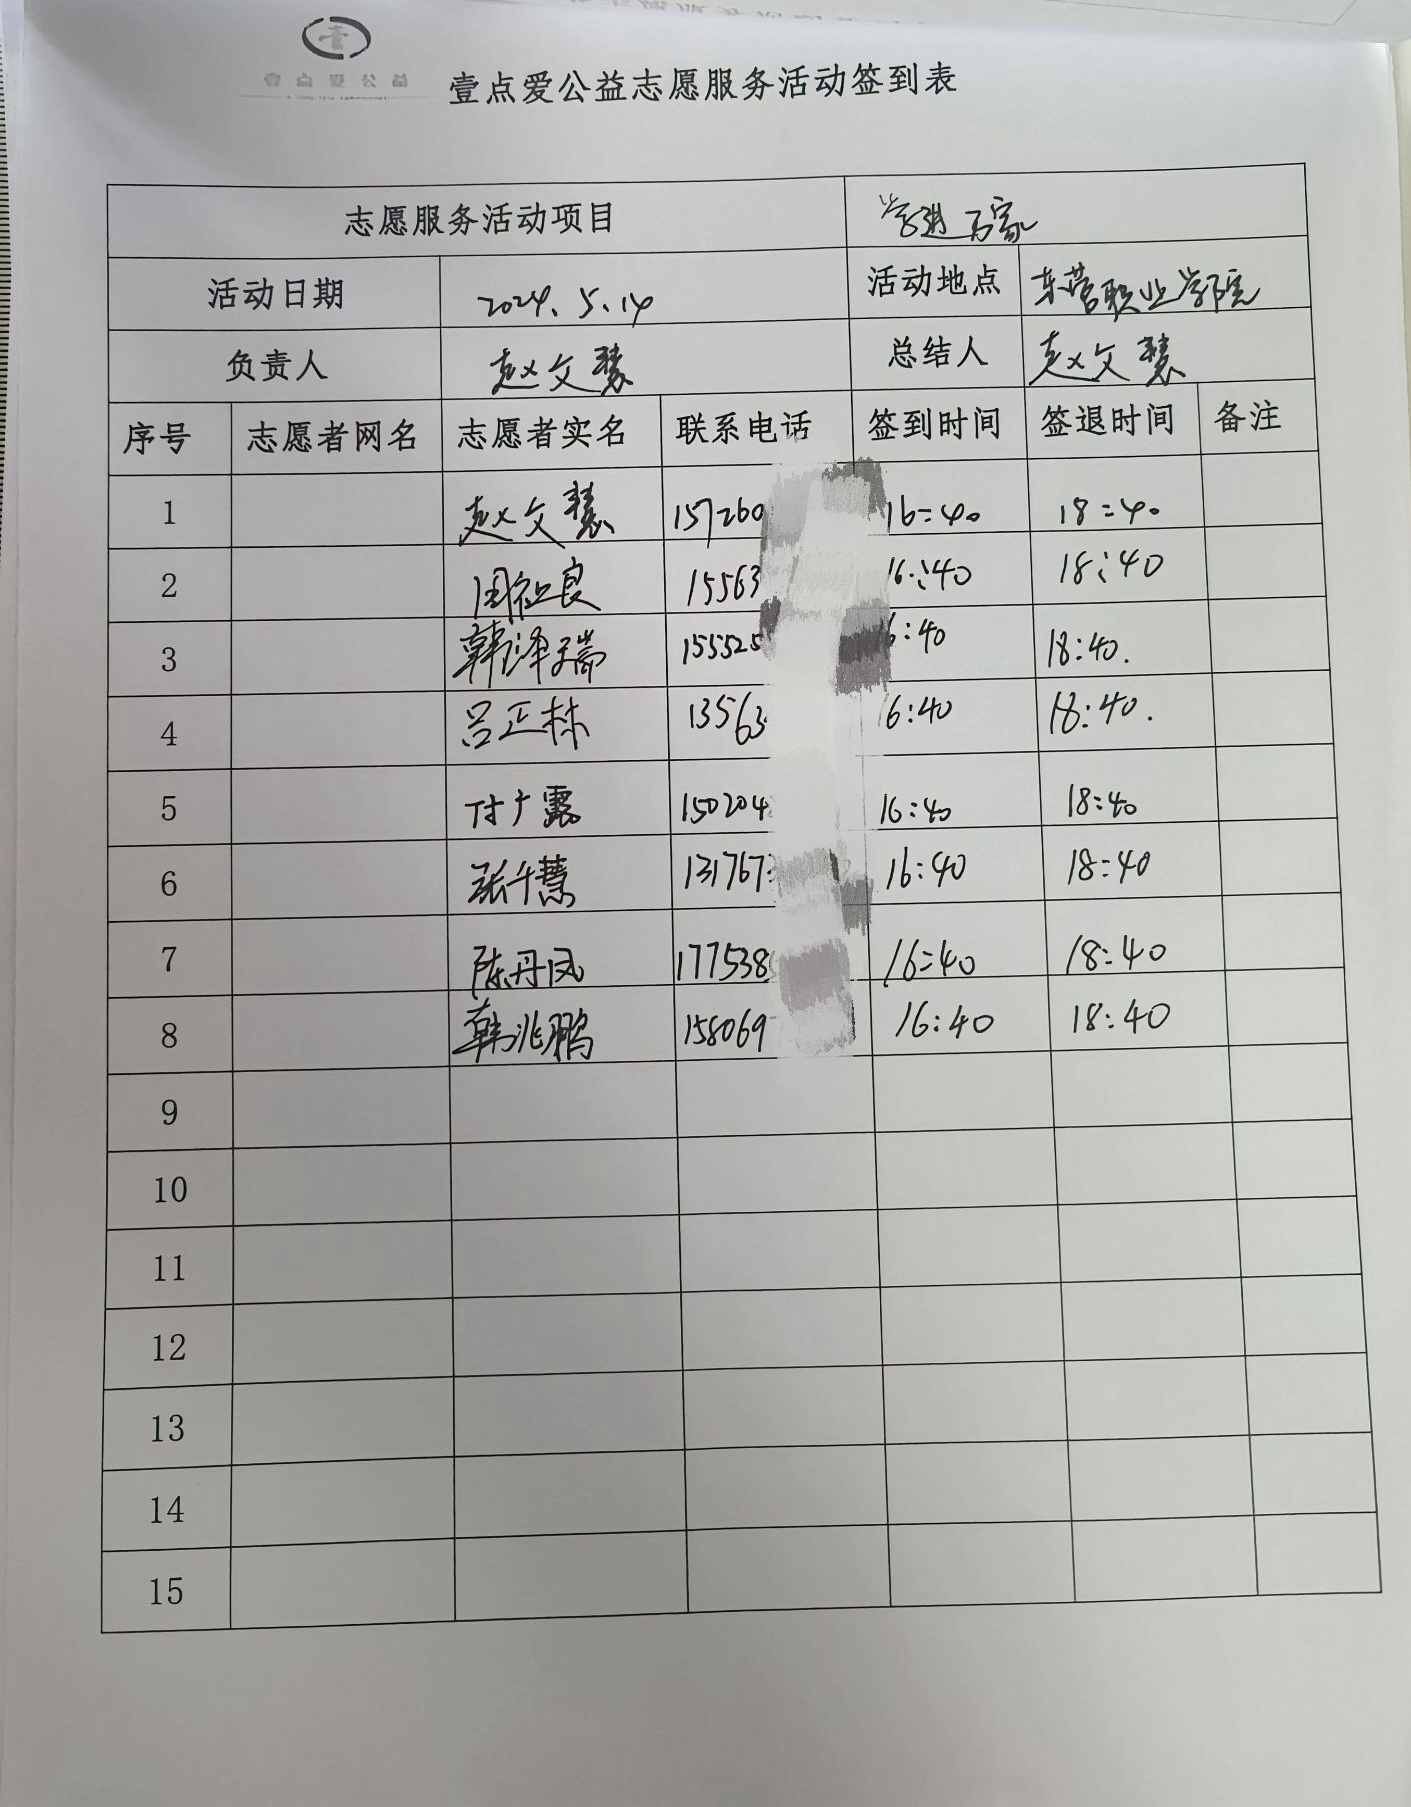 壹点爱公益
壹点爱公益志愿服务活动签到表
志愿服务活动项目 学进万家
活动日期 2024.5.14 活动地点 东营职业学院
负责人 赵文慧 总结人 赵文慧
序号 志愿者网名 志愿者实名 联系电话 签到时间 签退时间 备注
1 赵文慧 157260 16:40 18:40
2 周祖良 15563 16:40 18:40
3 韩泽瑞 155525 6:40 18:40.
4 吕正林 13563 6:40 18:40.
5 付广露 150204 16:40 18:40
6 张千慧 131767 16:40 18:40
7 陈丹凤 177538 16:40 18:40
8 韩兆鹏 158069 16:40 18:40
9
10
11
12
13
14
15